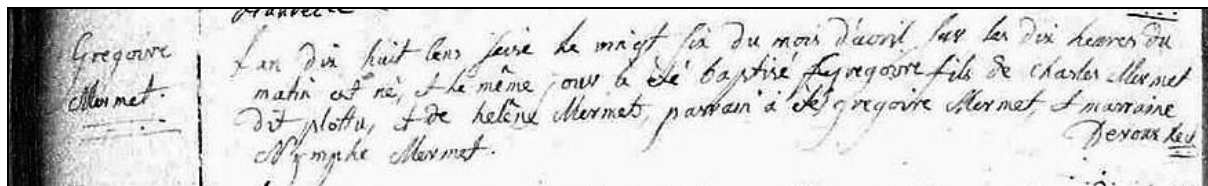 Gregoire
Mermet.
L'an dix huit cens seise le vingt six du mois d'avril sur les dix heures du
matin est né, et le même jour a été baptisé Gregoire fils de Charles Mermet
dit plottu, et de helène Mermet, parrain à été gregoire Mermet, et marraine
Nymphe Mermet.